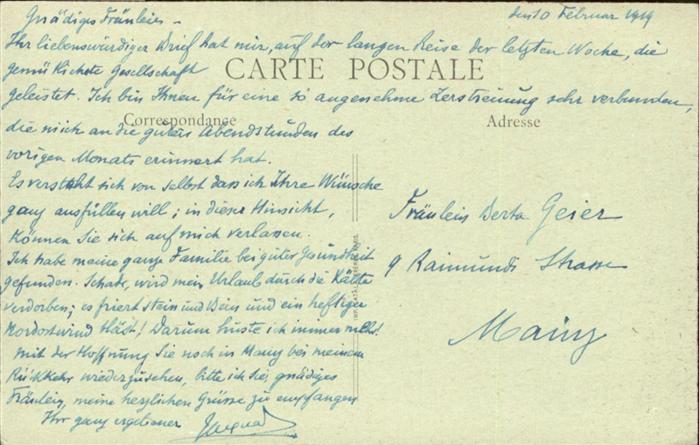 Gnädiges Fräulein –
den 10 Februar 1919
Ihr liebenswürdiger Brief hat mir, auf der langen Reise der letzten Woche, die
gemütlichste Gesellschaft
CARTE POSTALE
geleistet. Ich bin Ihnen für eine so angenehme Zerstreuung sehr verbunden,
Correspondance
Adresse
die mich an die guten Abendstunden des
vorigen Monats erinnert hat.
Es versteht sich von selbst dass ich Ihre Wünsche
ganz ausfüllen will; in dieser Hinsicht,
können Sie sich auf mich verlassen.
Ich habe meine ganze Familie bei guter Gesundheit
gefunden. Schade, wird mein Urlaub durch die Kälte
verdorben; es friert Stein und Bein und ein heftiger
Nordostwind bläst! Darum huste ich immer mehr!
Mit der Hoffnung Sie noch in Mainz bei meinem
Rückkehr wiederzusehen, bitte ich Sie, gnädiges
Fräulein, meine herzlichen Grüsse zu empfangen
Ihr ganz ergebener
Fräulein Berta Geier
9 Raimundi Strasse
Mainz